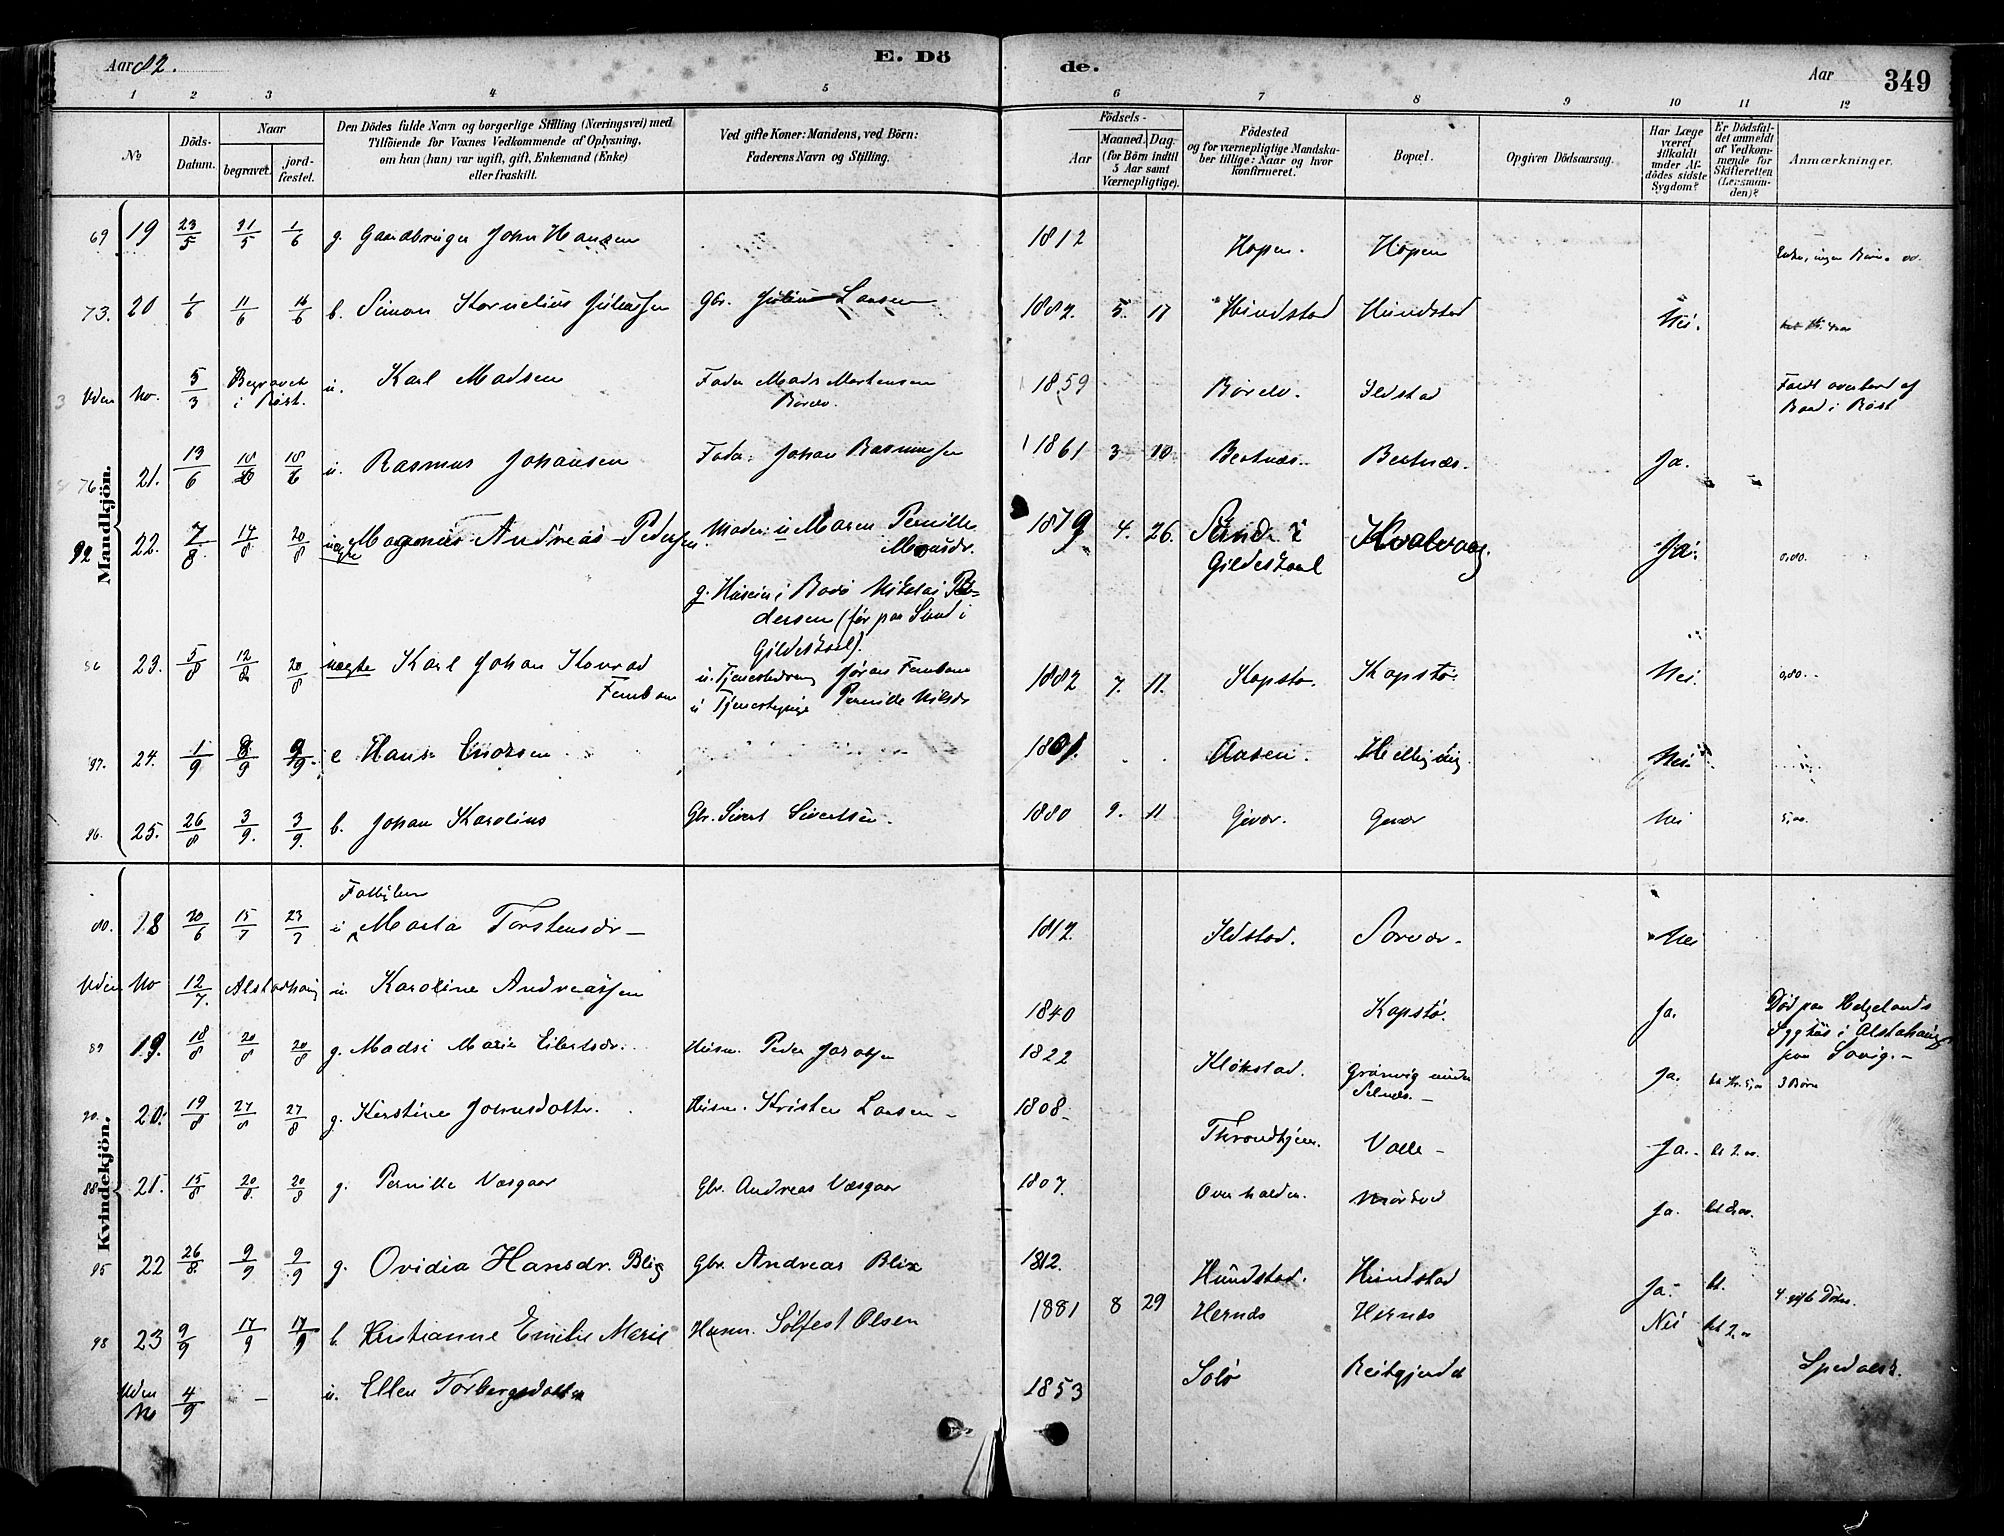 Aar 82.
E. Dö
de.
Aar
349
1 2 3 4 5 6 7 8 9 10 11 12
No
Döds-Datum.
Naar
begravet.
jord-fæstet.
Den Dödes fulde Navn og borgerlige Stilling (Næringsvei) med
Tilföiende for Voxnes Vedkommende af Oplysning,
om han (hun) var ugift, gift, Enkemand (Enke)
eller fraskilt.
Ved gifte Koner: Mandens, ved Börn:
Faderens Navn og Stilling.
Födsels-
Aar
Maaned. Dag.
(for Börn indtil
5 Aar samt
Værnepligtige).
Födested
og for værnepligtige Mandska-
ber tillige: Naar og hvor
konfirmeret.
Bopæl.
Opgiven Dödsaarsag.
Har Læge
været
tilkaldt
under Af-
dödes sidste
Sygdom?
Er Dödsfal-
det anmeldt
af Vedkom-
mende for
Skifteretten
(Lensman-
den)?
Anmærkninger.
Mandkjön.
69 19 23/5 31/5 1/6 g. Gaardbruger John Hansen 1812 Hopen. Hopen
73. 20 1/6 11/6 b. Simon Kornelius Juliussen Gbr. Julius Larsen 1882. 5. 17 Hundstad Hundstad Nei.
Uden No. 5/3 Begravet i Røst. u. Karl Madsen Fader Mads Mortensen 1859 Børelv. Ildstad Faldt overbord af
Børelv. Baad i Røst
76 21. 13/6 18/6 18/6 u. Rasmus Johansen Fader Johan Rasmussen 1861 3 10 Bertnæs. Bertnæs. Ja.
92 22. 7/8. 14/8. 20/8 uægte Magnus Andreas Pedersen. Moder: u Maren Pernille 1879 4. 26 Sund i Hvalvaag. Ja. 0,80.
Monsdr. Gildeskaal
g. Husein i Bodø Nikolai Pe-
dersen (før paa Sund i
Gildeskaal).
86 23. 5/8 12/8 20/8 uægte Karl Johan Konrad u. Tjenestedreng Jøran 1882 7. 11. Kopstø. Kopstø. Nei. 0,80.
u Tjenestepige Pernille Nilsdr
97. 24. 1/9 8/9 9/9. e Hans Enoksen 1801. Aasen. Nei.
96. 25. 26/8 3/9. 3/9. b. Johan Karolius Gbr. Sivert Sivertsen. 1880 9. 11 Givær. Givær Nei
Kvindekjön.
80. 18 30/6 15/7 23/7 u Marta Torstensdr 1812. Ildstad. Sørvær. Nei
Uden No 12/7. Alstadhaug u. Karoline Andreassen 1840 Kopstø. Ja. Død paa Helgelands
Sygehus i Alstahaug
89 19. 18/8 20/8 20/8 g. Madsi Marie Eilertsdr. Husm. Peder Jakobsen 1822 Kløkstad. Grønvig under Ja. 3 Børn
Selnæs.
90. 20. 19/8 27/8 27/8 g. Kirstine Johnsdotter. Husm. Krister Larsen 1808 Throndhjem. Valle Ja. bt 2.00.
88 21. 15/8 20/8. 20/8 g. Pernille Vosgaar Gbr. Andreas Vosgaar 1807. Overhalden. Mørkved Ja.
95 22 26/8. 9/9 9/9 g. Ovidia Hansdr. Blix Gbr. Andreas Blix 1812. Hundstad. Hundstad Ja. bt. 4 gifte Døtre.
98 23 9/9 17/9 17/9 b. Kristianne Emilie Marie Husm. Sølfest Olsen 1881 8 29 Hernæs Hernæs Nei bt 2.00
Uden No 4/9 - u. Ellen Torbergsdotter 1853 Solø Reitgjerdet Spedalsk.